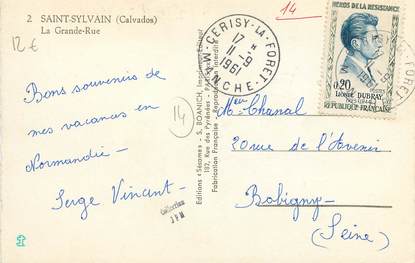 2 SAINT-SYLVAIN (Calvados)
La Grande-Rue
12 €
14
Bons souvenirs de
mes vacances en
Normandie -
Serge Vincent -
14
Collection
J P M
Editions « Sésame » - S. BOANICH, Imp.
182, Rue des Pyrénées - PARIS
Fabrication Française - Reproduction interdite
CERISY-LA-FORET
MANCHE
17 H
11-9
1961
HÉROS DE LA RESISTANCE
0,20
LIONEL DUBRAY
1923-1944
RÉPUBLIQUE FRANÇAISE
Chanal
20 rue de l'Avenir
Bobigny -
(Seine)